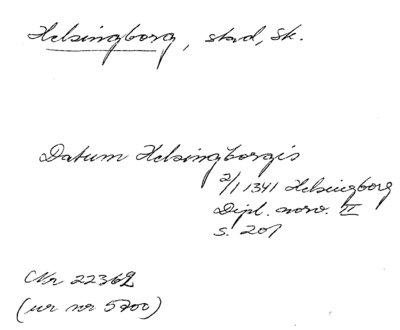 Helsingborg, stad, Sk.
Datum Helsingborgis
2/1 1341 Helsingborg
Dipl. norv. II
s. 201
Nr 22362
(ur nr 5700)